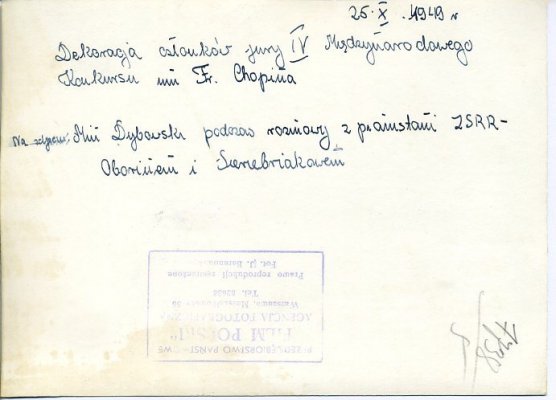 25. X. 1949 r
Dekoracja członków jury IV Międzynarodowego
Konkursu im Fr. Chopina
Na zdjęciu: Min Dybowski podczas rozmowy z pianistami ZSRR-
Oborinem i Sieriebriakowem
PRZEDSIĘBIORSTWO PAŃSTWOWE
"FILM POLSKI"
AGENCJA FOTOGRAFICZNA
Warszawa,
Tel.
Prawo reprodukcji zastrzeżone
Fot. J.